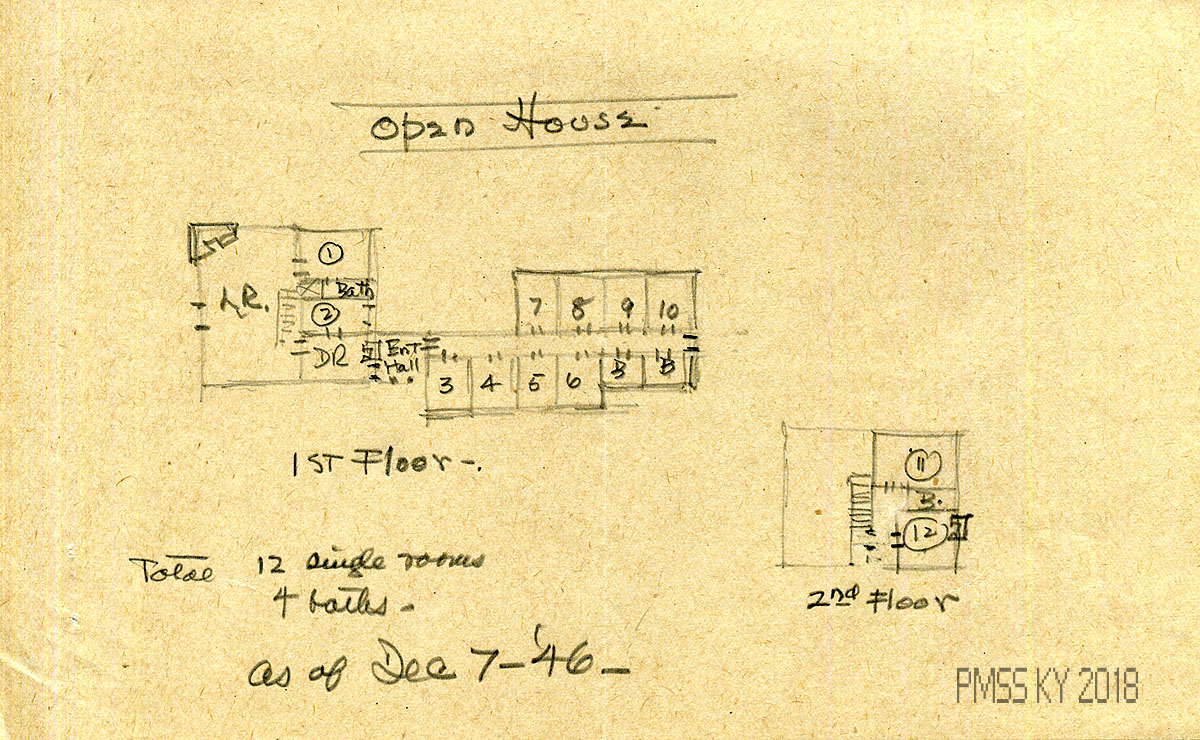 Open House
1
Bath
L.R.
2
DR
Ent
Hall
7 8 9 10
3 4 5 6 B B
1ST Floor -.
11
B.
12
2nd Floor
Total 12 single rooms
4 baths -
as of Dec 7-'46-
PMSS KY 2018